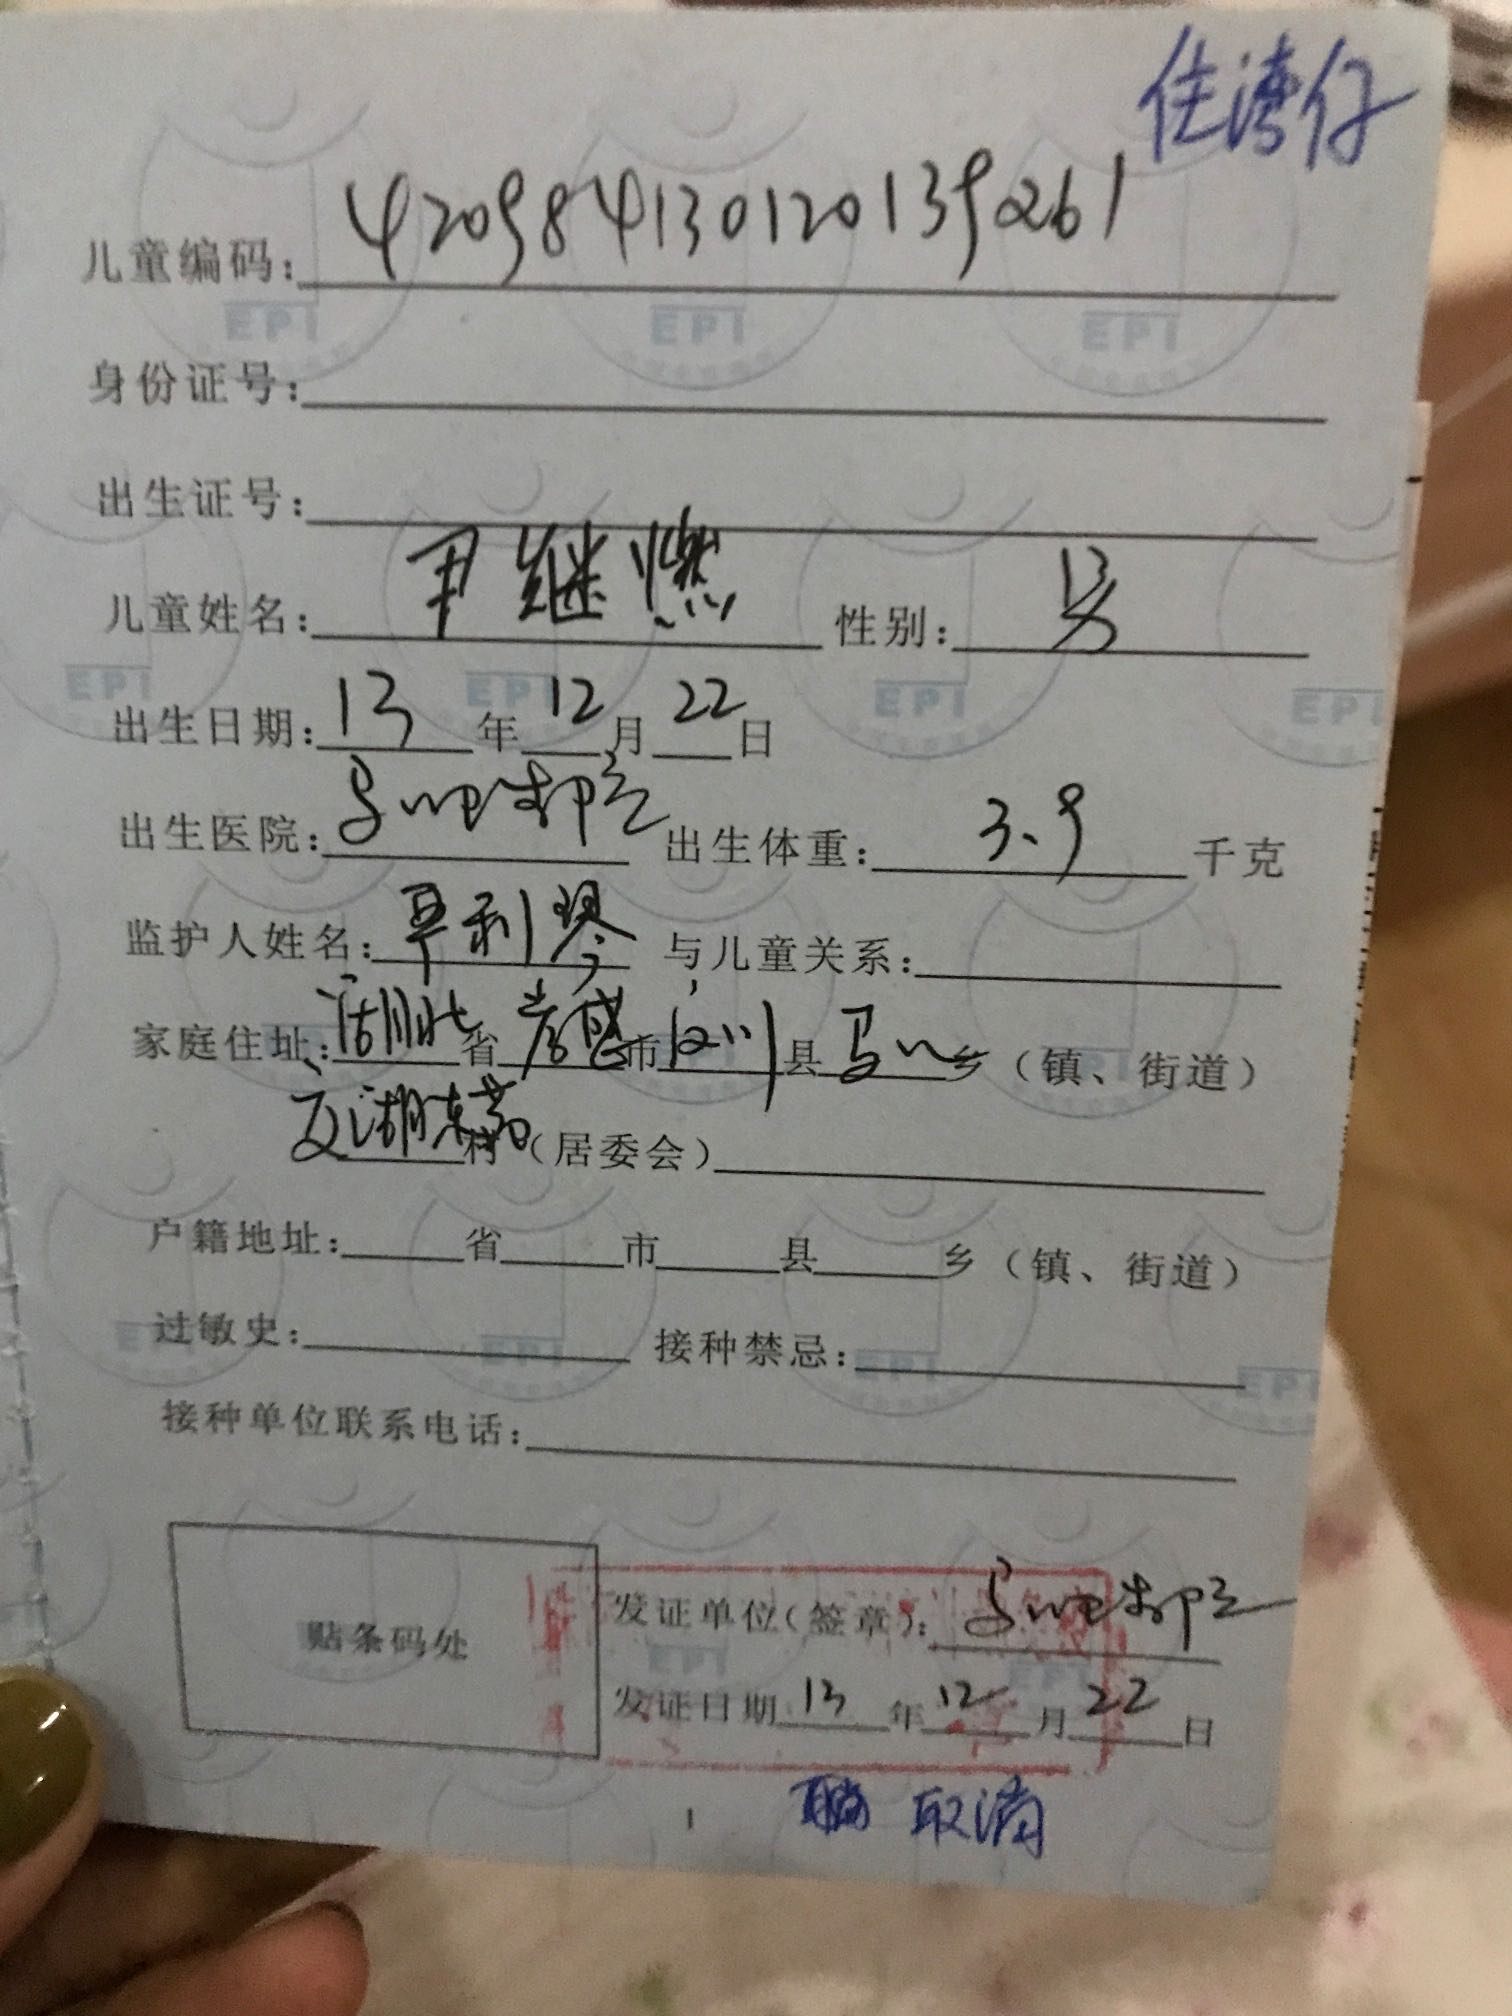 住湾仔
儿童编码:420984130120139261
身份证号:
出生证号:
儿童姓名:尹继燃 性别:男
出生日期:13年12月22日
出生医院: 出生体重:3.9千克
监护人姓名:利琴 与儿童关系:
家庭住址:湖北省孝感市汉川县马口乡(镇、街道)
湖东村(居委会)
户籍地址: 省 市 县 乡(镇、街道)
过敏史: 接种禁忌:
接种单位联系电话:
贴条码处
发证单位(签章):
发证日期13年12月22日
取消
1